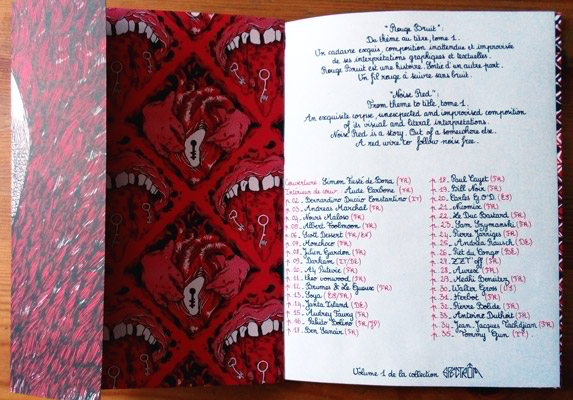 "Rouge Bruit":
Du thème au titre, tome 1.
Un cadavre exquis, composition inattendue et improvisée
de ses interprétations graphiques et textuelles.
Rouge Bruit est une histoire. Sortie d'un autre part.
Un fil rouge à suivre sans bruit.
"Noise Red":
From theme to title, tome 1.
An exquisite corpse, unexpected and improvised composition
of its visual and literal interpretations.
Noise Red is a story. Out of a somewhere else.
A red wire to follow noise free.
Couverture: Simon Fusé de Bona (FR)
Intérieur de couv: Aude Carbone (FR)
p. 02. Bernardino Duccio Constantino (IT)
p. 03. Andreas Marchal (FR)
p. 04. Nours Maloso (FR)
p. 05. Albert Foolmoon (FR)
p. 06. Scott Dessert (FR/ES)
p. 07. Monchoco (FR)
p. 08. Julien Gardon (FR)
p. 09. Barham (IT/DE)
p. 10. Aly Putevie (FR)
p. 11. theo vonwood (FR)
p. 12. Brumes & Le Gueux (FR)
p. 13. Goya (ES/FR)
p. 14. Janta Island (DE)
p. 15. Audrey Faury (FR)
p. 16. Pakito Bolino (FR/JP)
p. 17. Ben Sanair (FR)
p. 18. Paul Cayet (FR)
p. 19. Bill Noir (FR)
p. 20. Carles G.O.D. (ES)
p. 21. Nicomix (FR)
p. 22. Le Duc Bastard. (FR)
p. 23. Sam Szymanski (FR)
p. 24. Pierre Jarriges (FR)
p. 25. Andréa Rausch (DE)
p. 26. Rat du Congo (DE)
p. 27. ZZT'off (FR)
p. 28. Aurect (FR)
p. 29. Medhi Beneitez (FR)
p. 30. Walter Gross (US)
p. 31. Herbot (FR)
p. 32. Pierre Bolide (FR)
p. 33. Antoine Duthoit (FR)
p. 34. Jean-Jacques Tachdjian (FR)
p. 35. Tommy Gun (IT)
Volume 1 de la collection